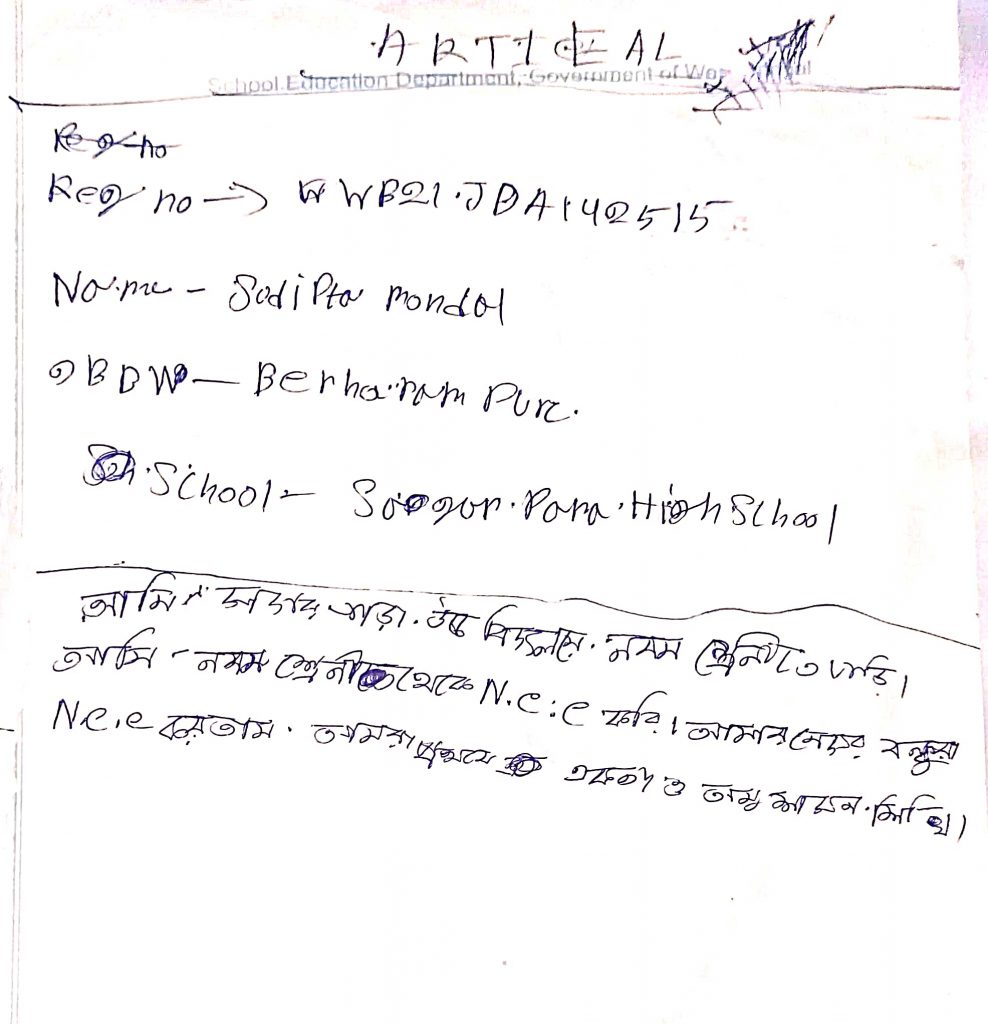 ARTICAL
School Education Department, Government of West
Reg no
Reg no → WWB21.JDA142515
Name - Sudipta mondal
BDW — Berharam Pur.
School - Sagar. Para. High School
আমি সাগর পাড়া. উচ্চ বিদ্যালয়ে. নবম শ্রেনীতে পড়ি।
আমি - নবম শ্রেনী থেকে N.C.C করি। আমার মেয়ের বন্ধুরা
N.C.C করতাম. আমরা প্রথমে একতা ও অনুশাসন. শিখি।